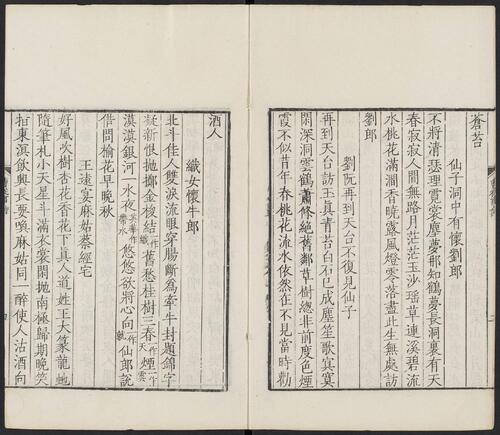 蒼苔
仙子洞中有懷劉郎
不將清瑟理霓裳塵夢那知鶴夢長洞裏有天
春寂寂人間無路月茫茫玉沙瑶草連溪碧流
水桃花滿澗香曉露風燈零落盡此生無處訪
劉郎
劉阮再到天台不復見仙子
再到天台訪玉真青苔白石已成塵笙歌寞寞
閑深洞雲鶴蕭條絶舊鄰草樹總非前度色煙
霞不似昔年春桃花流水依然在不見當時勸
酒人
織女懷牛郎
北斗佳人雙淚流眼穿腸斷為牽牛封題錦字
凝新恨抛擲金梭結一作織舊愁桂樹三春一作天煙一作雲
漠漠銀河一水夜悠悠欲將心向一作就仙郎說
借問榆花早晚秋
王遠宴麻姑蔡經宅
好風吹樹杏花香花下真人道姓王大篆龍蛇
隨筆札小天星斗滿衣裳閑抛南極歸期晚笑
指東溟飲興長要喚麻姑同一醉使人沽酒向